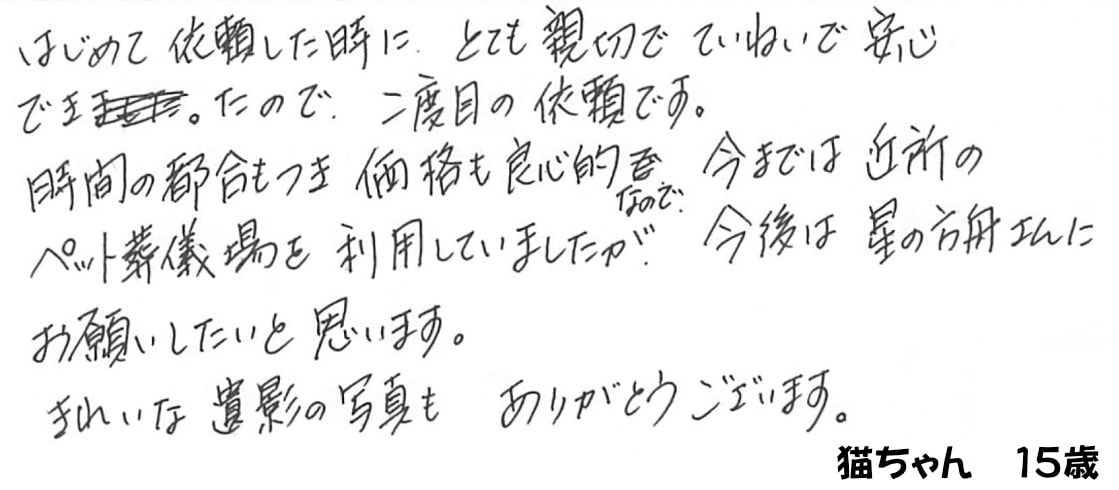 はじめて 依頼した時に、とても 親切で ていねいで 安心
でき。たので、二度目の 依頼です。
時間の都合もつき 価格も良心的なので、今までは 近所の
ペット葬儀場を 利用していましたが、今後は 星の方舟さんに
お願いしたいと 思います。
きれいな 遺影の写真も ありがとうございます。
猫ちゃん 15歳